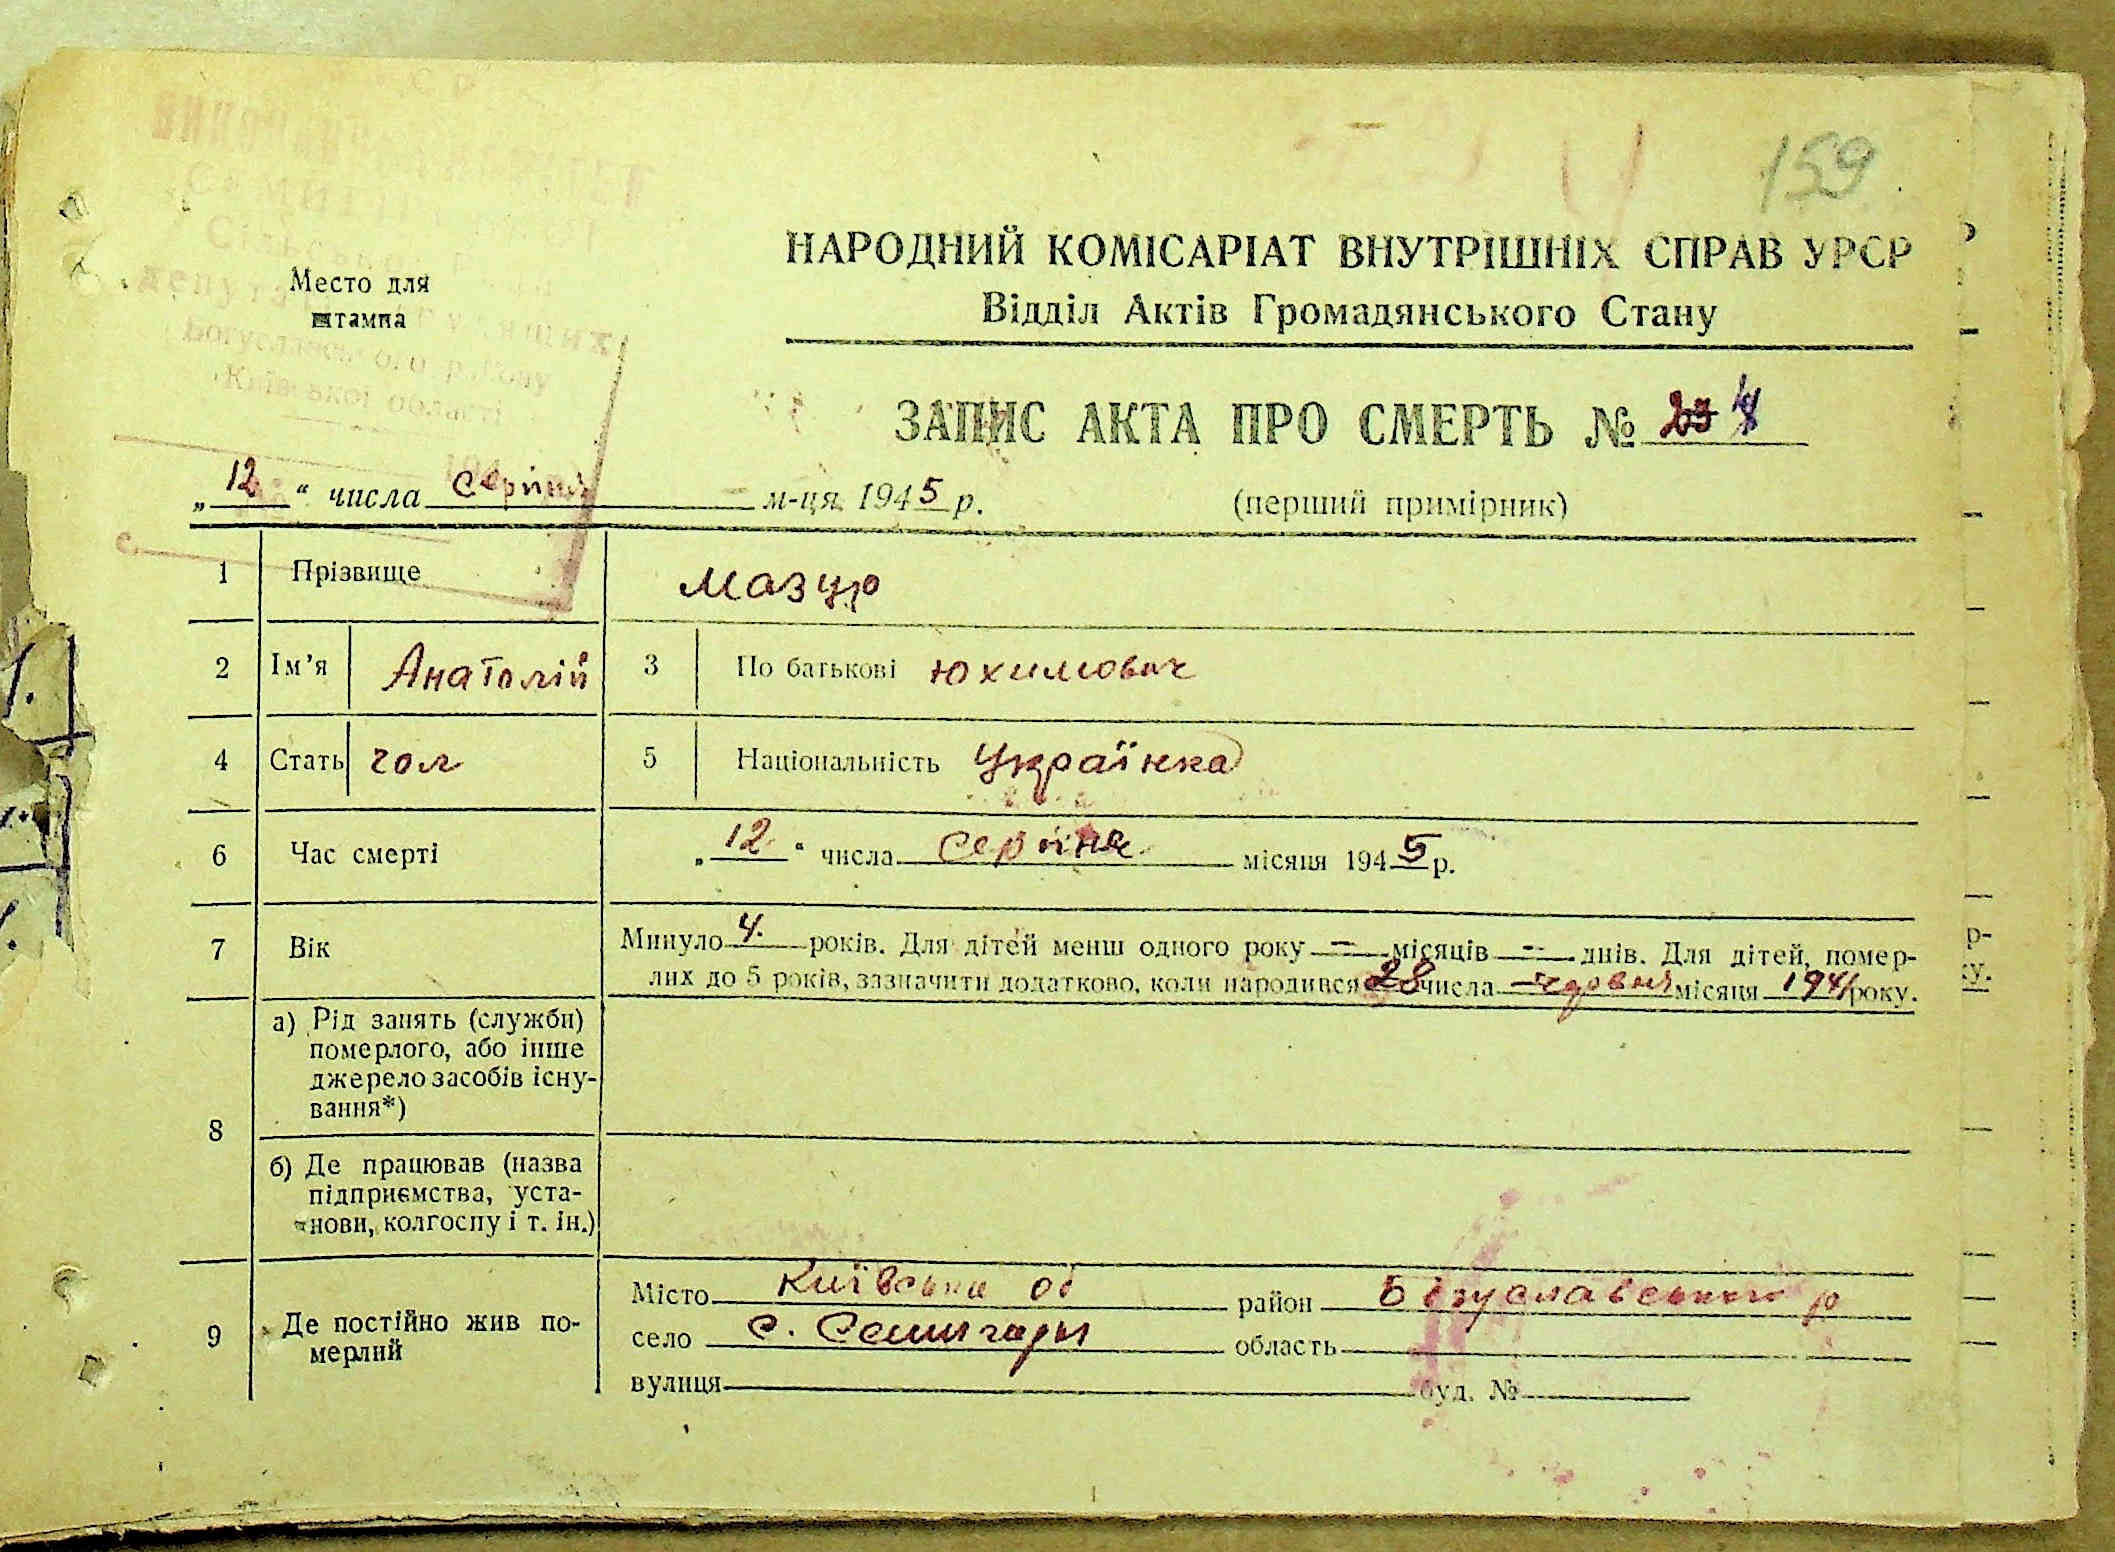 159
НАРОДНИЙ КОМІСАРІАТ ВНУТРІШНІХ СПРАВ УРСР
Відділ Актів Громадянського Стану
Место для
штампа
Богуславського району
Київської області
ЗАПИС АКТА ПРО СМЕРТЬ №
„12“ числа Серпня м-ця 1945 р. (перший примірник)
1 Прізвище Мазур
2 Ім’я Анатолій 3 По батькові Юхимович
4 Стать чол 5 Національність Українка
6 Час смерті „12“ числа Серпня місяця 1945 р.
7 Вік Минуло 4. років. Для дітей менш одного року — місяців — днів. Для дітей, помер-
лих до 5 років, зазначити додатково, коли народився 28 числа червня місяця 1941 року.
8 а) Рід занять (служби)
померлого, або інше
джерело засобів існу-
вання*)
б) Де працював (назва
підприємства, уста-
нови, колгоспу і т. ін.)
9 Де постійно жив по-
мерлий
Місто Київська об район Богуславського р
село с. Семигори область
вулиця буд. №